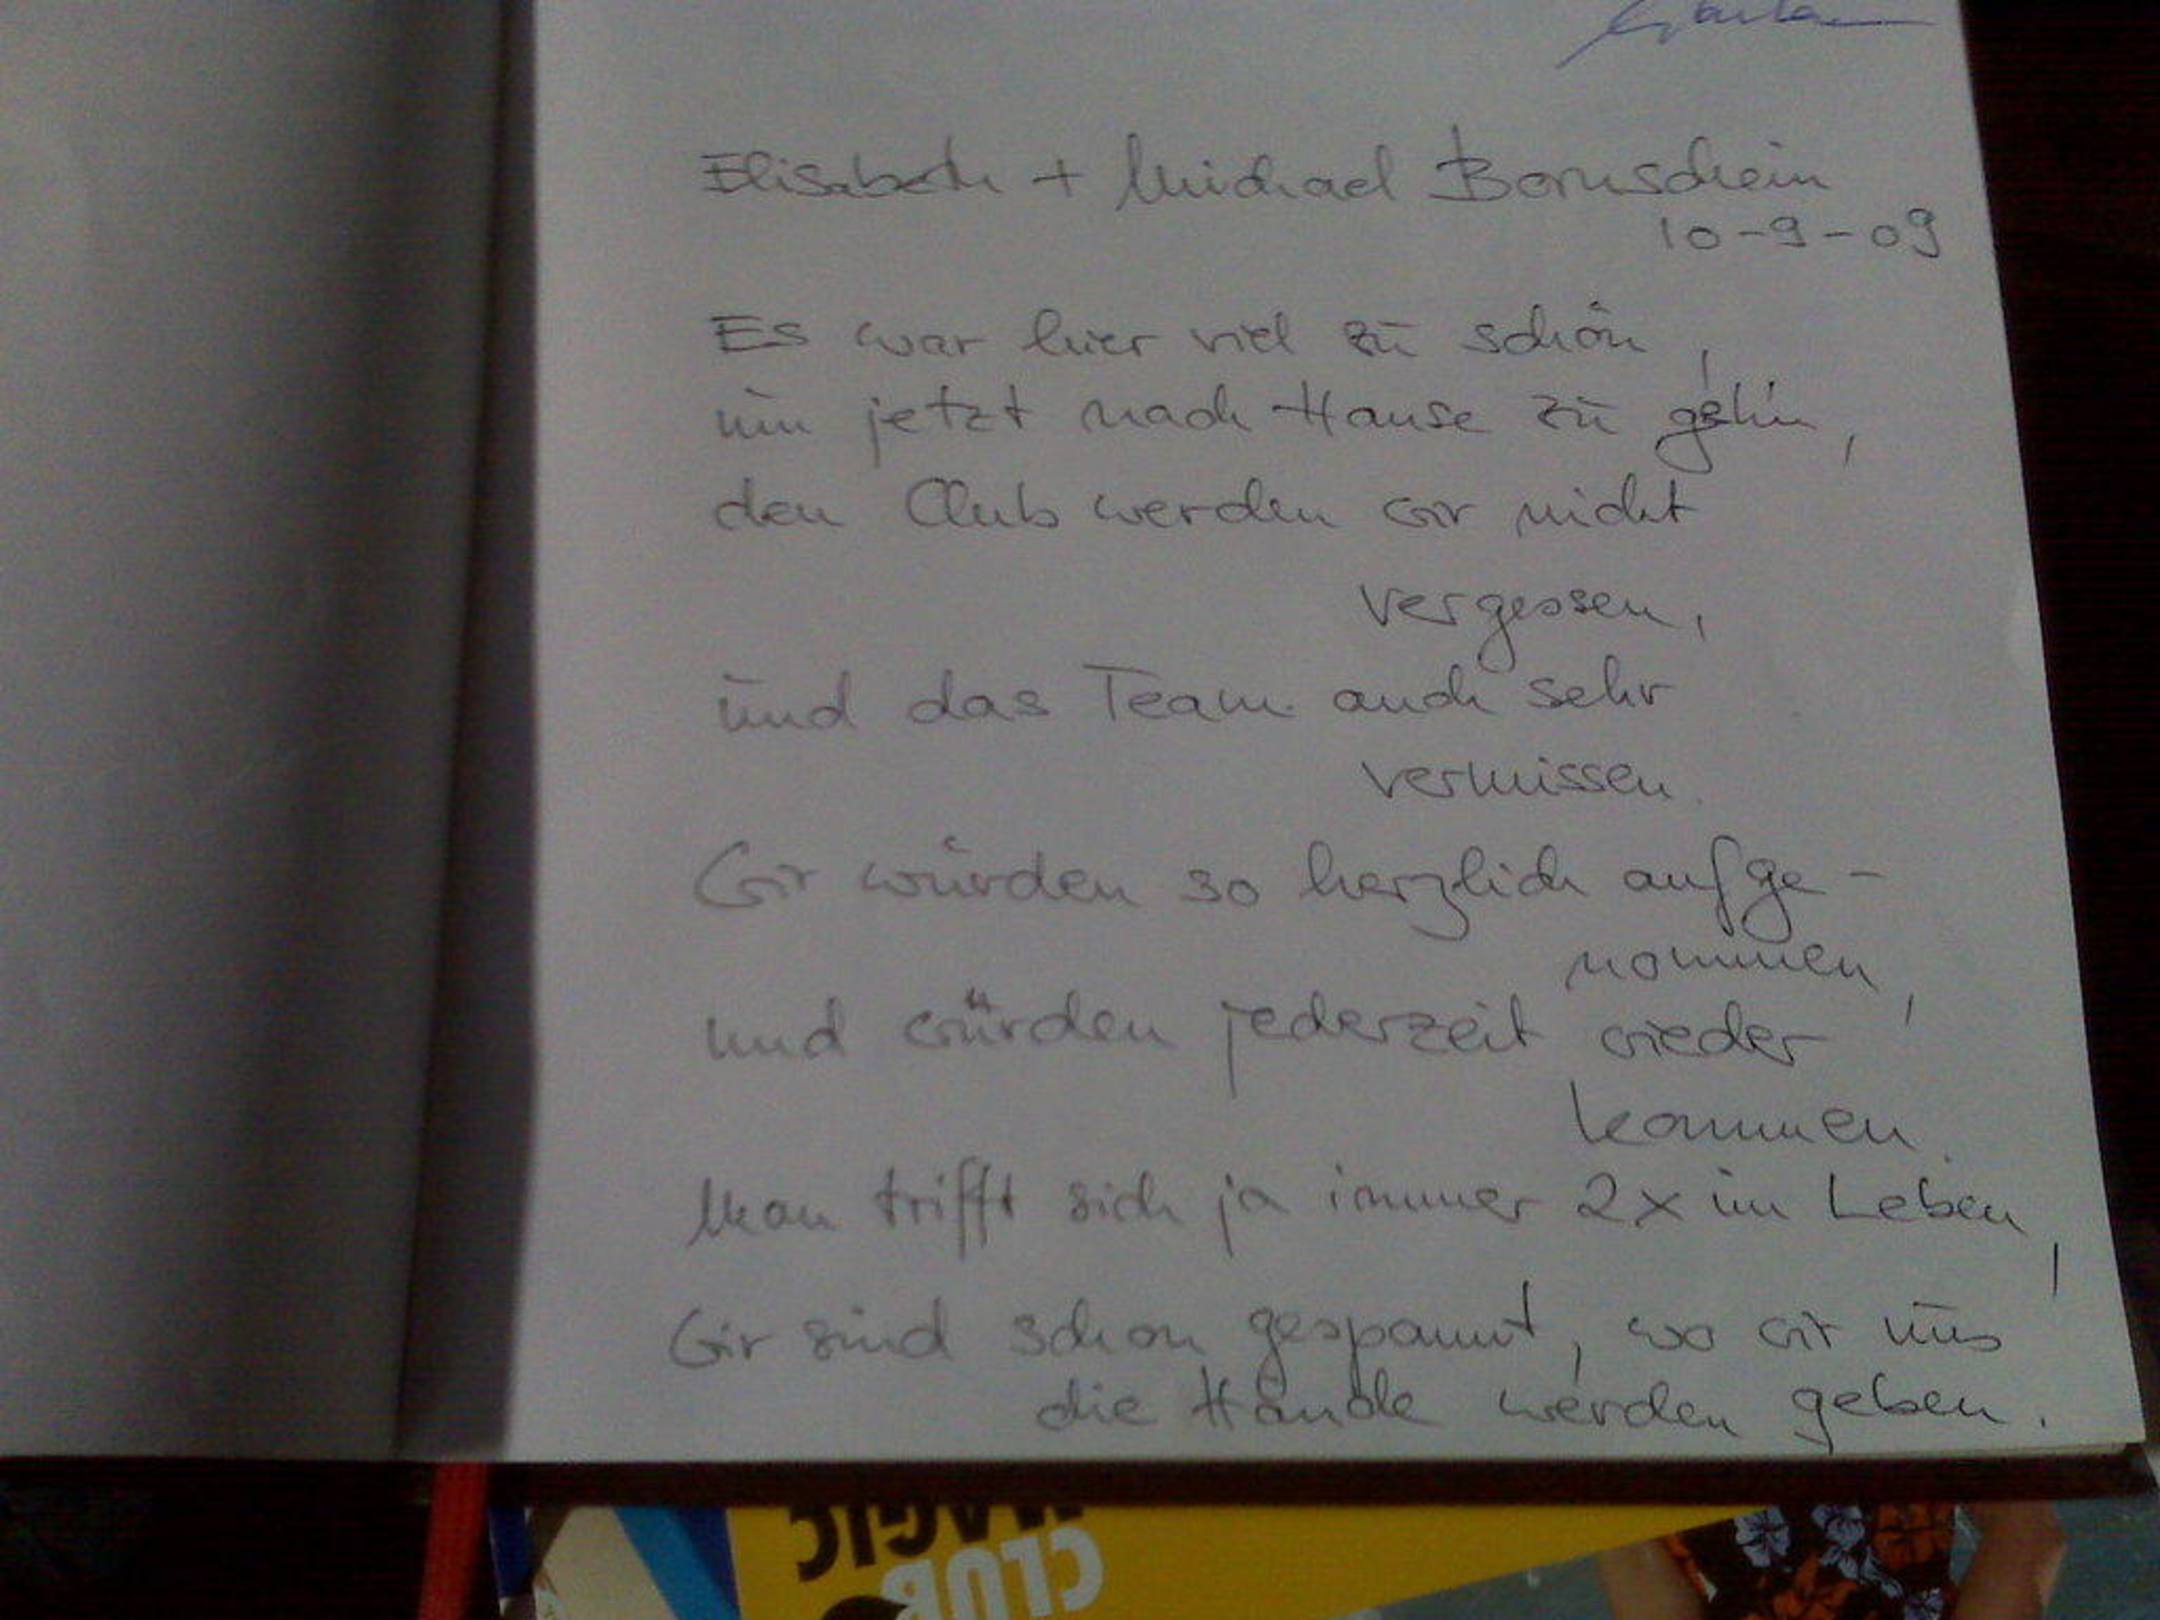 Elisabeth + Michael Bornschein
10-9-09
Es war hier viel zu schön,
um jetzt nach Hause zu geh'n,
den Club werden wir nicht
vergessen,
und das Team auch sehr
vermissen.
Wir wurden so herzlich aufge-
nommen,
und würden jederzeit wieder
kommen.
Man trifft sich ja immer 2x im Leben,
Wir sind schon gespannt, wo wir uns
die Hände werden geben.
MAGIC
CLUB